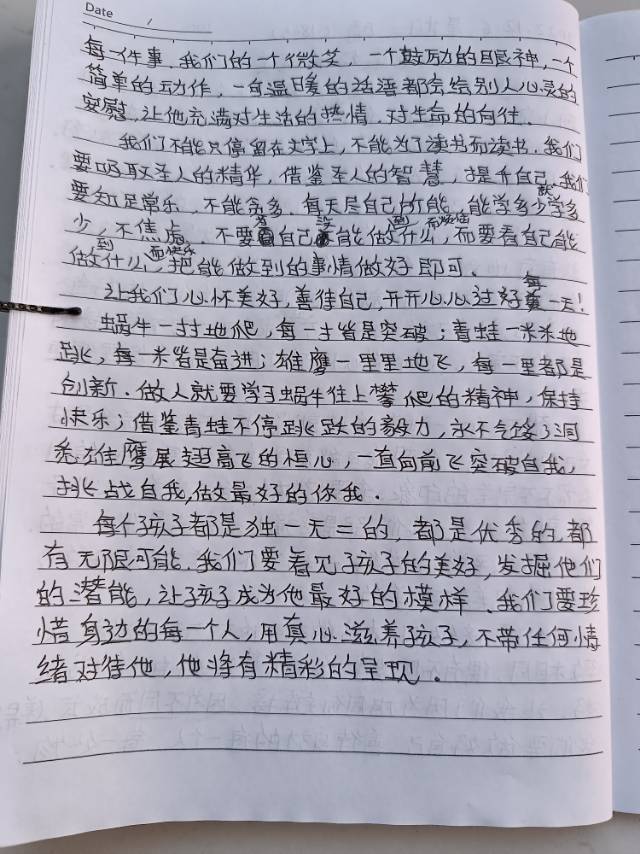 Date
每一件事,我们的一个微笑,一个鼓励的眼神,一个
简单的动作,一句温暖的话语都会给别人心灵的
安慰,让他充满对生活的热情,对生命的向往.
我们不能只停留在文字上,不能为了读书而读书,我们
要吸取圣人的精华,借鉴圣人的智慧,提升自己.我们
要知足常乐,不能贪多,每天尽自己所能,能学多少学多
少,不焦虑.不要为自己没能做什么而烦恼,而要看自己能
做到什么而快乐,把能做到的事情做好即可.
让我们心怀美好,善待自己,开开心心过好每一天!
蜗牛一寸寸地爬,每一寸皆是突破;青蛙一米米地
跳,每一米皆是奋进;雄鹰一里里地飞,每一里都是
创新.做人就要学习蜗牛往上攀爬的精神,保持
快乐;借鉴青蛙不停跳跃的毅力,永不气馁;洞
悉雄鹰展翅高飞的恒心,一直向前飞突破自我,
挑战自我,做最好的你我.
每个孩子都是独一无二的,都是优秀的,都
有无限可能.我们要看见孩子的美好,发掘他们
的潜能,让孩子成为他最好的模样.我们要珍
惜身边的每一个人,用真心滋养孩子,不带任何情
绪对待他,他将有精彩的呈现.